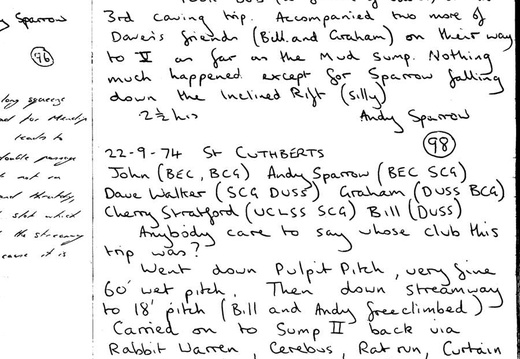 3rd caving trip. Accompanied two more of
Dave's friends (Bill and Graham) on their way
to V as far as the Mud Sump. Nothing
much happened except for Sparrow falling
down the Inclined Rift (silly)
2½ hrs Andy Sparrow
98
22-9-74 St CUTHBERTS
John (BEC, BCG) Andy Sparrow (BEC SCG)
Dave Walker (SCG DUSS) Graham (DUSS BCG)
Cherry Stratford (UCLSS SCG) Bill (DUSS)
Anybody care to say whose club this
trip was?
Went down Pulpit Pitch, very fine
60' wet pitch. Then down streamway
to 18' pitch (Bill and Andy freeclimbed)
Carried on to Sump II back via
Rabbit Warren, Cerebus, Rat run, Curtain
y Sparrow
96
long squeeze
leads to
double passage
not on
slot which
the streamway
cause it is